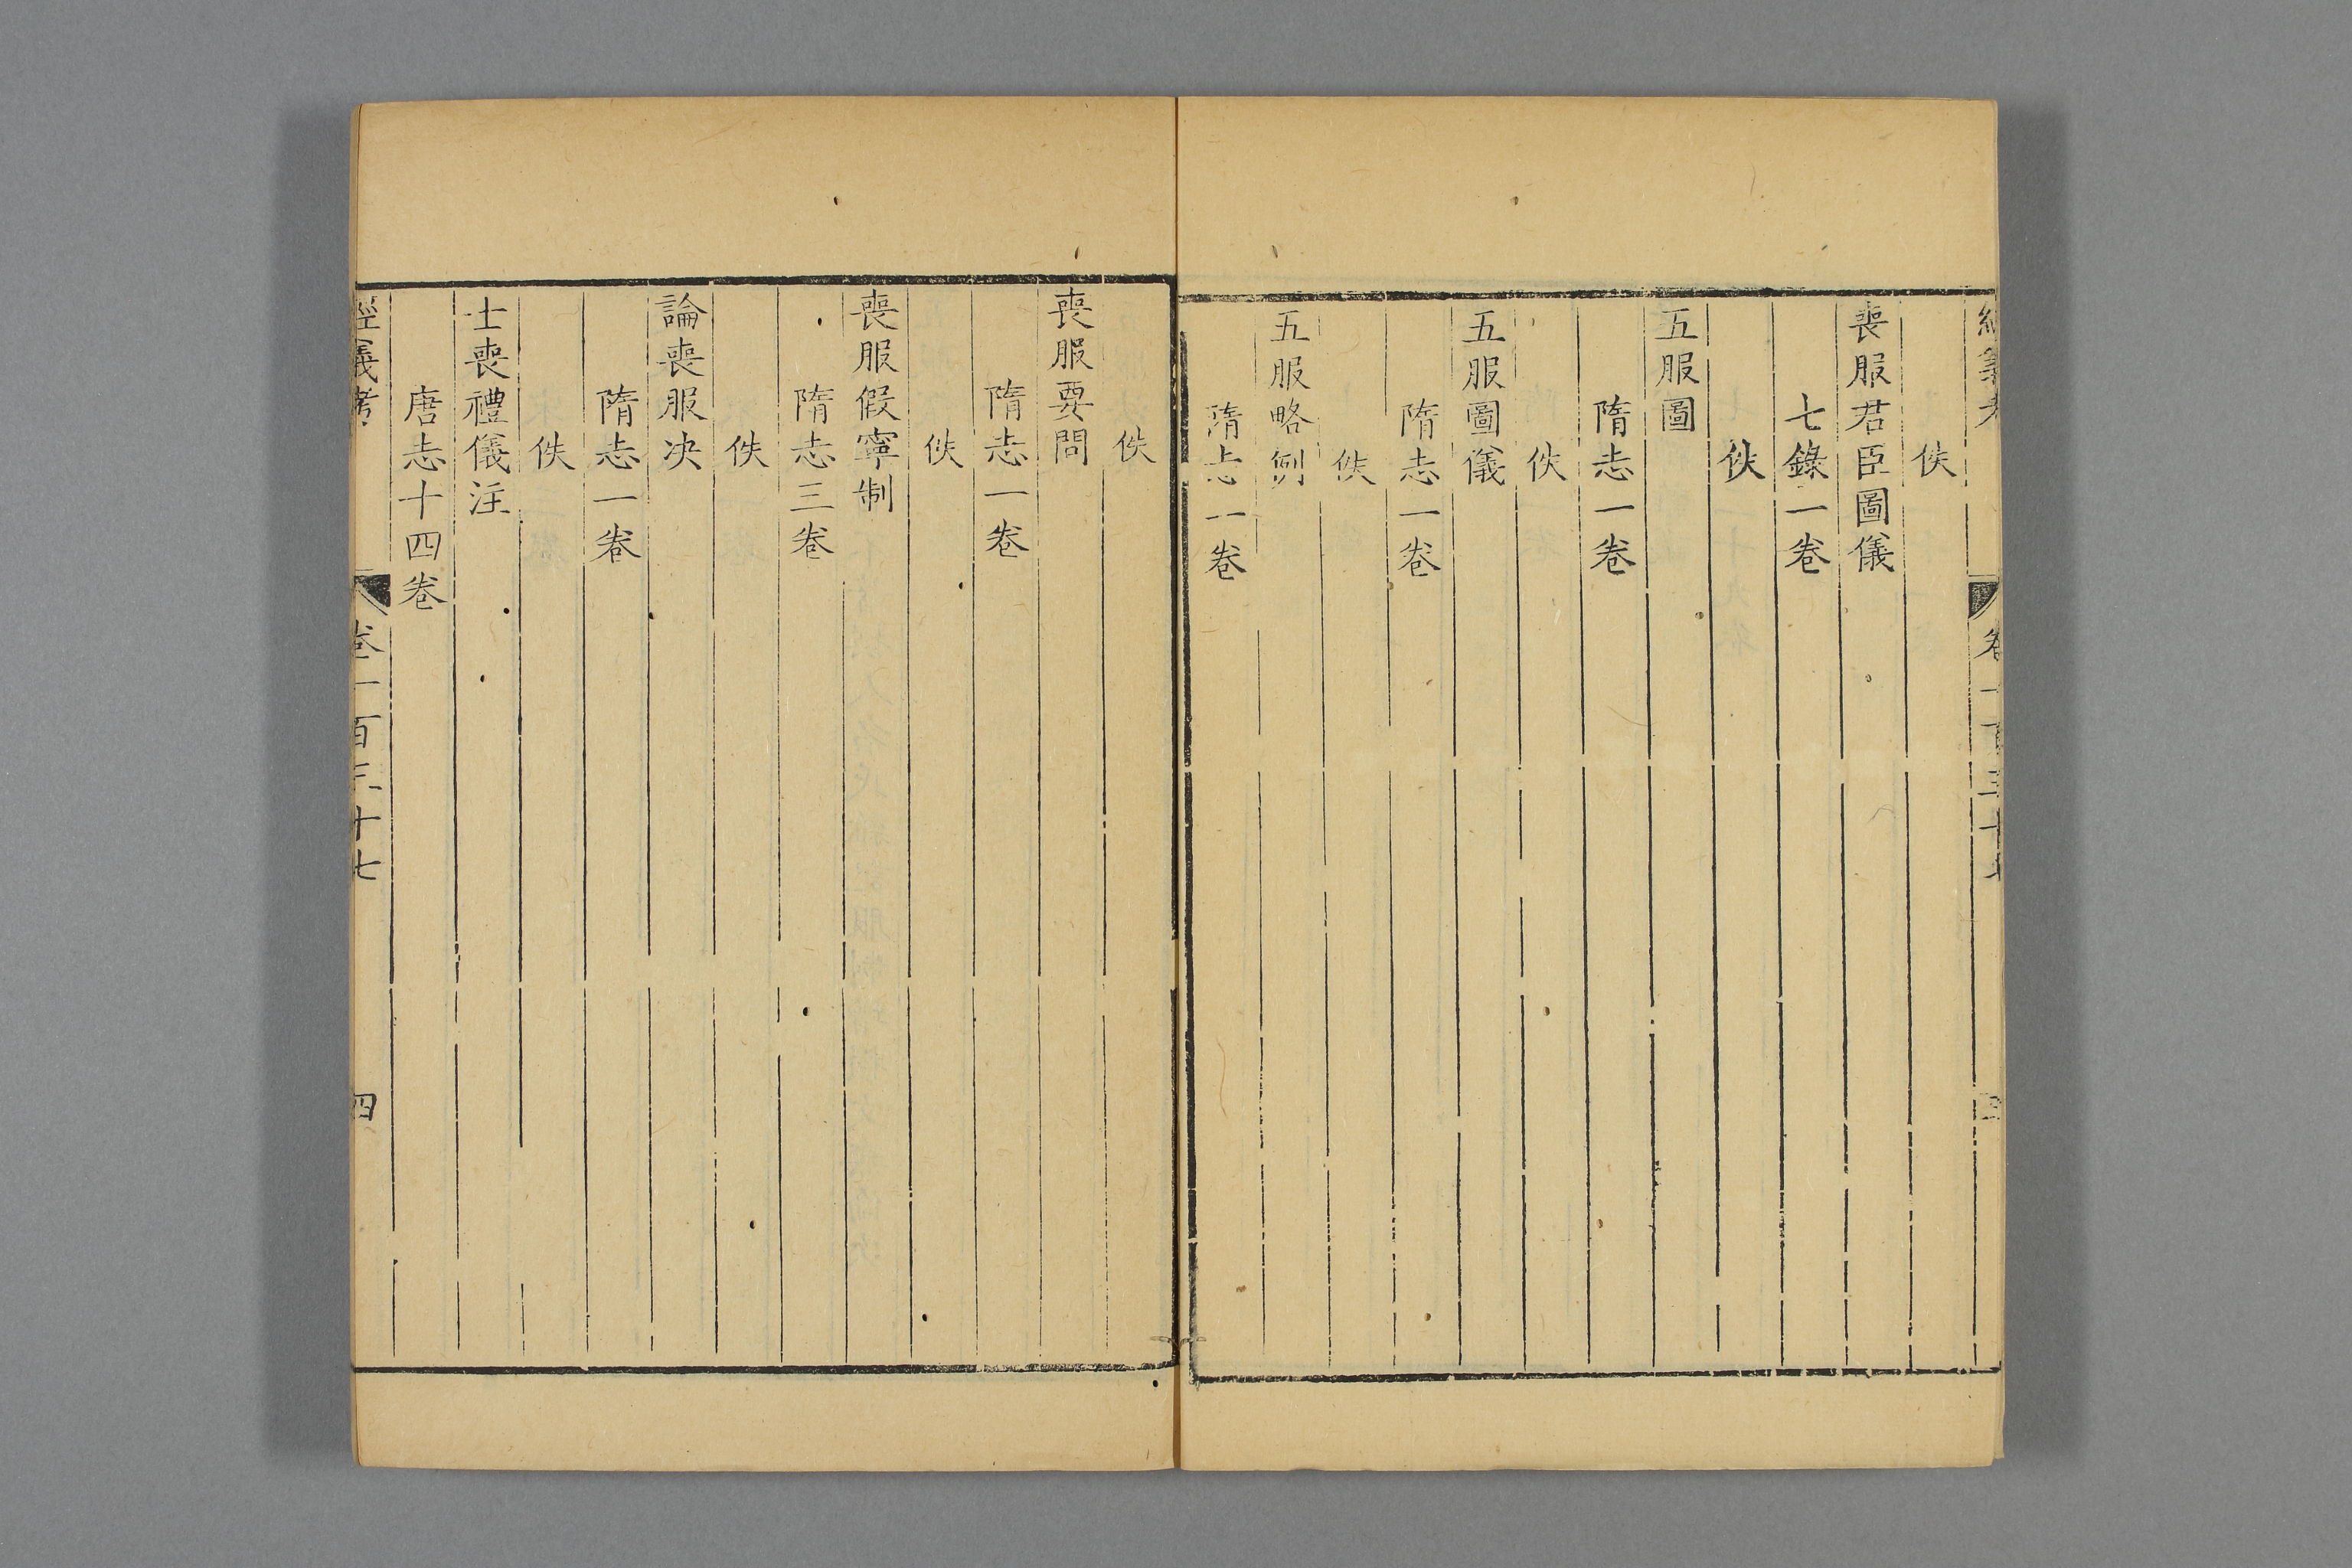 佚
喪服君臣圖儀
七錄一卷
佚
五服圖
隋志一卷
佚
五服圖儀
隋志一卷
佚
五服略例
隋志一卷
佚
喪服要問
隋志一卷
佚
喪服假寧制
隋志三卷
佚
論喪服决
隋志一卷
佚
士喪禮儀注
唐志十四卷
經義考
卷一百三十七
四